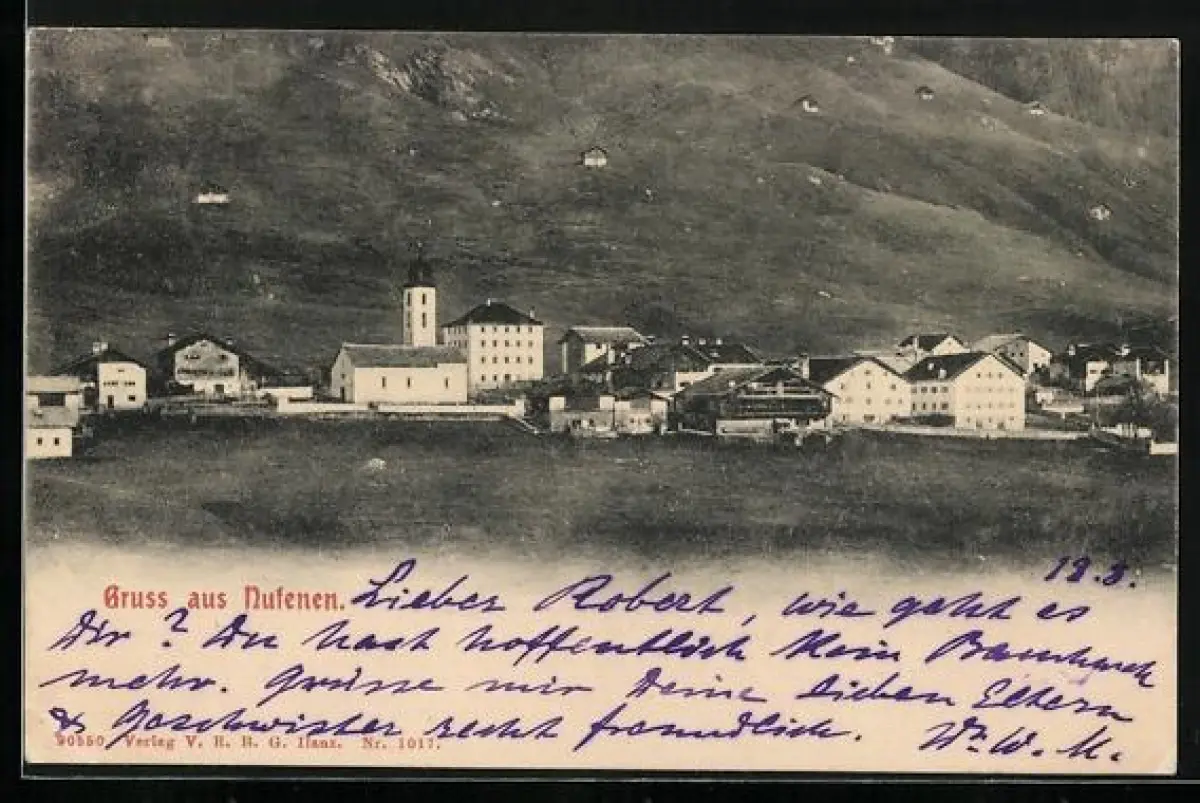 12.8.
Gruss aus Nufenen. Lieber Robert, wie geht es
Dir? Du hast hoffentlich kein Bauchweh
mehr. Grüsse mir Deine lieben Eltern
& Geschwister recht freundlich. W. K.
Verlag V. E. B. G. Ilanz. Nr. 1017.